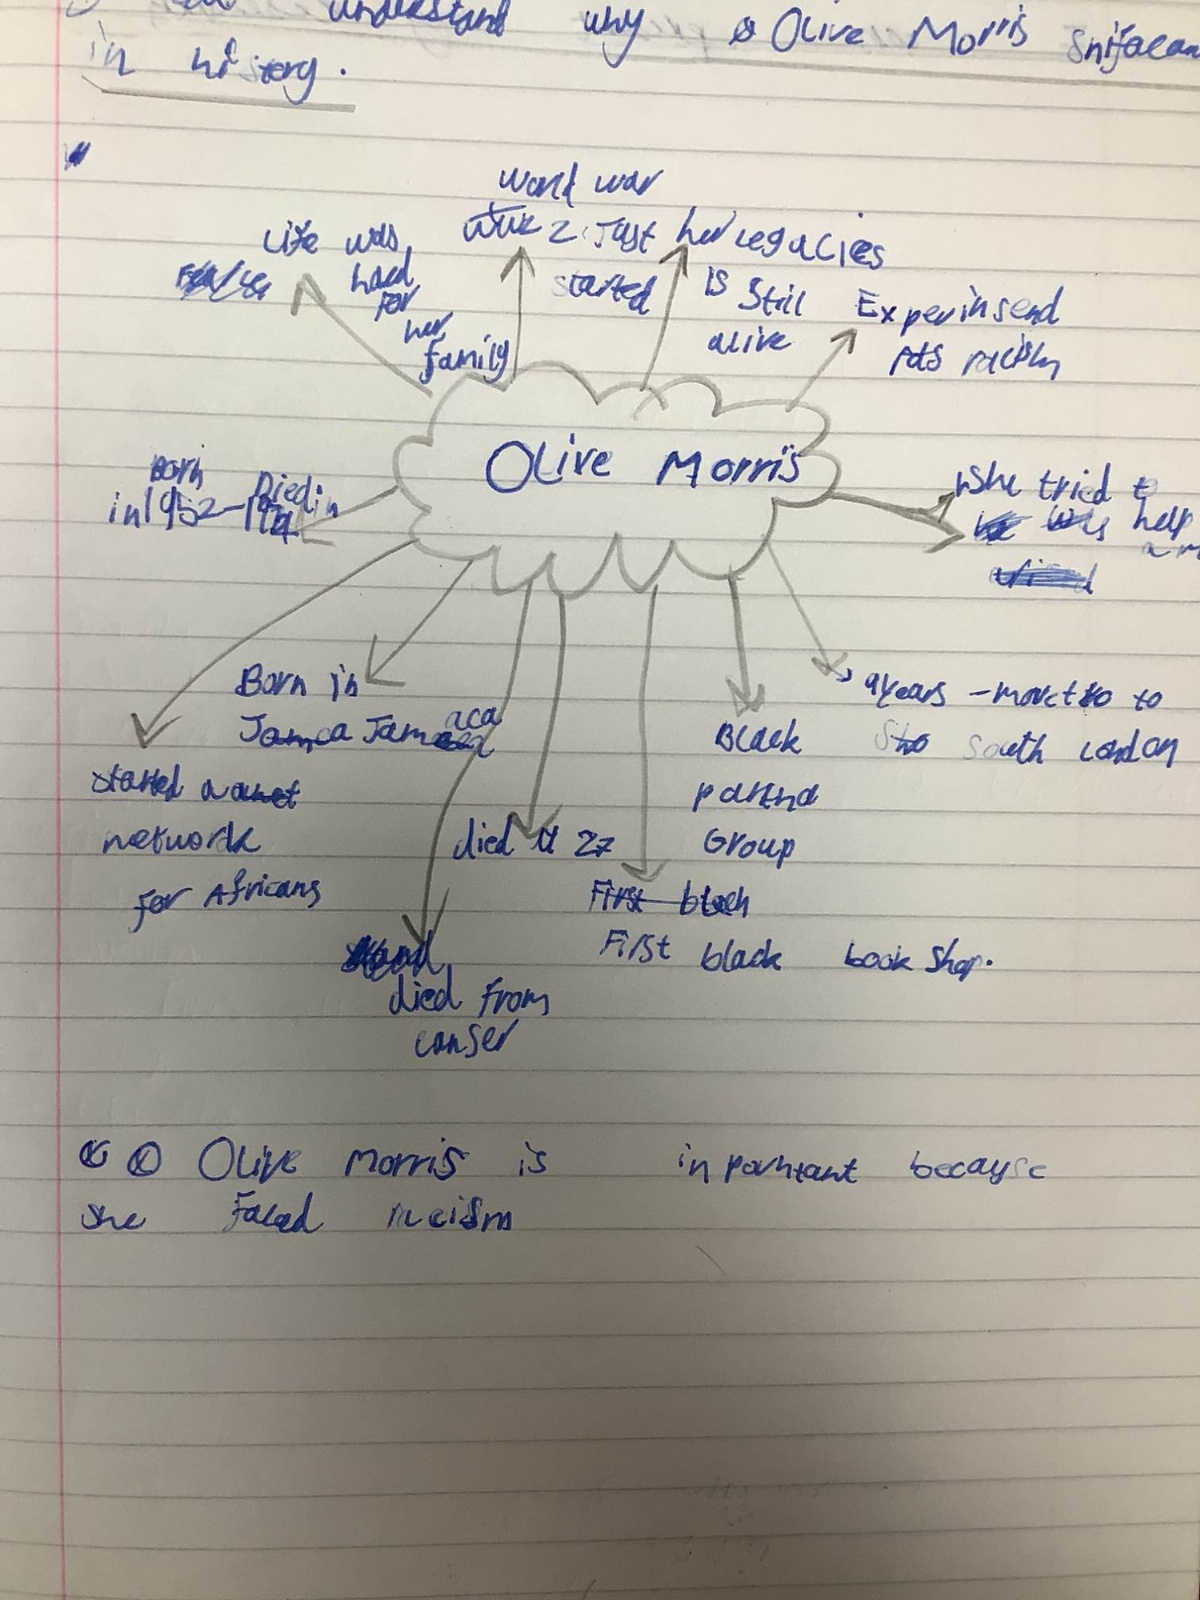 understand why Olive Morris snifacan
in history.
world war
2 Just
started
Life was
hard
for
her
family
her legacies
is still
alive
Experinsend
racism
Olive Morris
Born
in 1952-
Died in
She tried t
help
Born in
Jamca Jamaaca
started a
network
for Africans
9years - move to
South London
Black
partha
Group
died 27
First black
First black book shop.
died from
canser
Olive Morris is inportant because
she faced racism